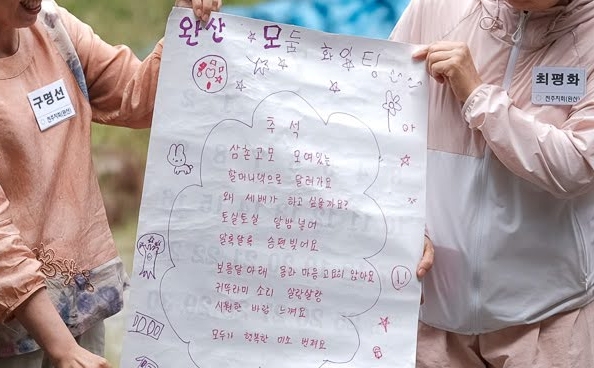 완산 모둠 화잍팅
구명선
전주지회(완산)
최평화
전주지회(완산)
추석
삼촌고모 모여있는
할머니댁으로 달려가요
왜 세배가 하고 싶을까요?
토실토실 알밤 넣어
알록달록 송편 빚어요
보름달 아래 몸과 마음 고요히 앉아요
귀뚜라미 소리 살랑살랑
시원한 바람 느껴요
모두가 행복한 미소 번져요